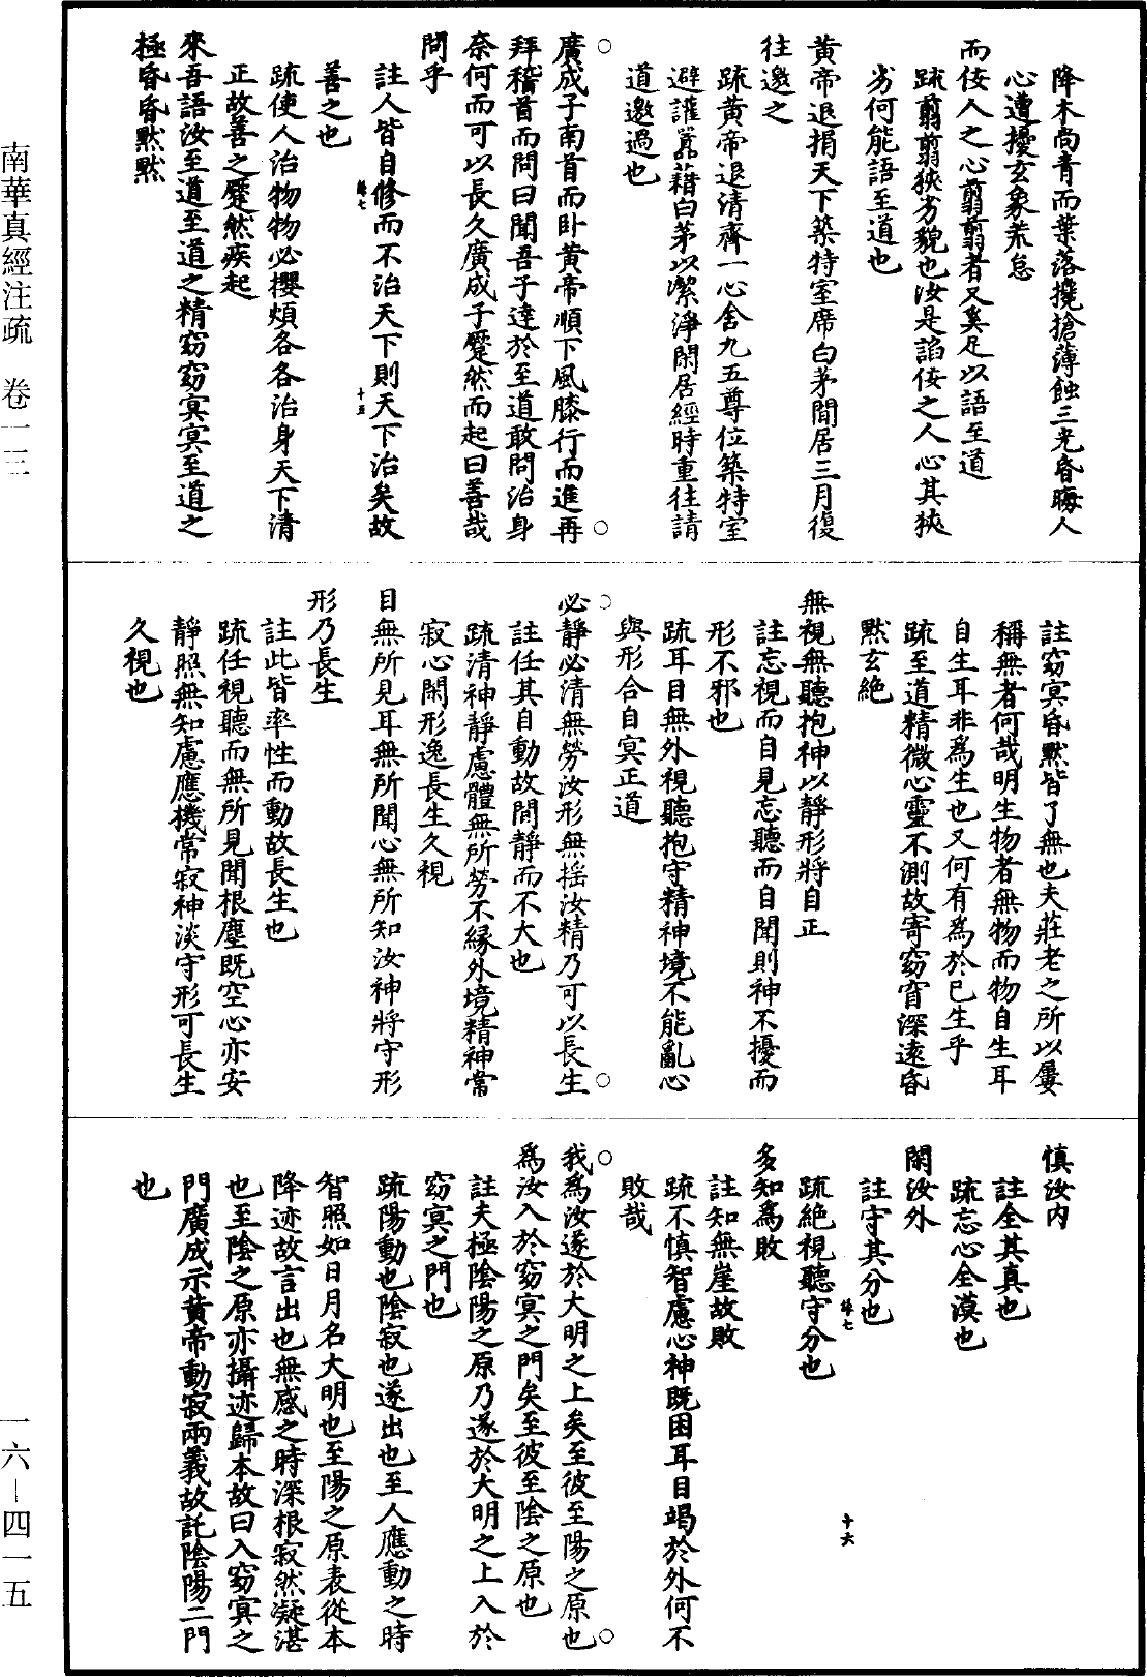 降木尚青而葉落攙搶薄蝕三光昏晦人
心遭擾玄象荒怠
而佞人之心翦翦者又奚足以語至道
疏翦翦狹劣貌也汝是諂佞之人心其狹
劣何能語至道也
黄帝退捐天下築特室席白茅間居三月復
往邀之
疏黄帝退清齊一心舍九五尊位築特室
避讙囂藉白茅以潔淨閑居經時重往請
道邀過也
○廣成子南首而卧黄帝順下風膝行而進再○
拜稽首而問曰聞吾子達於至道敢問治身
奈何而可以長久廣成子蹷然而起曰善哉
問乎
註人皆自修而不治天下則天下治矣故
緣七 十五
善之也
疏使人治物物必攖煩各各治身天下清
正故善之蹷然疾起
來吾語汝至道至道之精窈窈冥冥至道之
極昏昏默默
註窈冥昏默皆了無也夫莊老之所以屢
稱無者何哉明生物者無物而物自生耳
自生耳非爲生也又何有爲於已生乎
疏至道精微心靈不測故寄窈窅深遠昏
默玄絶
無視無聽抱神以靜形將自正
註忘視而自見忘聽而自聞則神不擾而
形不邪也
疏耳目無外視聽抱守精神境不能亂心
與形合自冥正道
○必靜必清無勞汝形無摇汝精乃可以長生○
註任其自動故閒靜而不夭也
疏清神靜慮體無所勞不緣外境精神常
寂心閑形逸長生久視
目無所見耳無所聞心無所知汝神將守形
形乃長生
註此皆率性而動故長生也
疏任視聽而無所見聞根塵既空心亦安
靜照無知慮應機常寂神淡守形可長生
久視也
慎汝内
註全其真也
疏忘心全漠也
閑汝外
註守其分也
緣七 十六
疏絶視聽守分也
多知爲敗
註知無崖故敗
疏不慎智慮心神既困耳目竭於外何不
敗哉
○我爲汝遂於大明之上矣至彼至陽之原也○
爲汝入於窈冥之門矣至彼至陰之原也
註夫極陰陽之原乃遂於大明之上入於
窈冥之門也
疏陽動也陰寂也遂出也至人應動之時
智照如日月名大明也至陽之原表從本
降迹故言出也無感之時深根寂然凝湛
也至陰之原亦攝迹歸本故曰入窈冥之
門廣成示黄帝動寂兩義故託陰陽二門
也
南華真經注疏 卷一三
一六—四一五